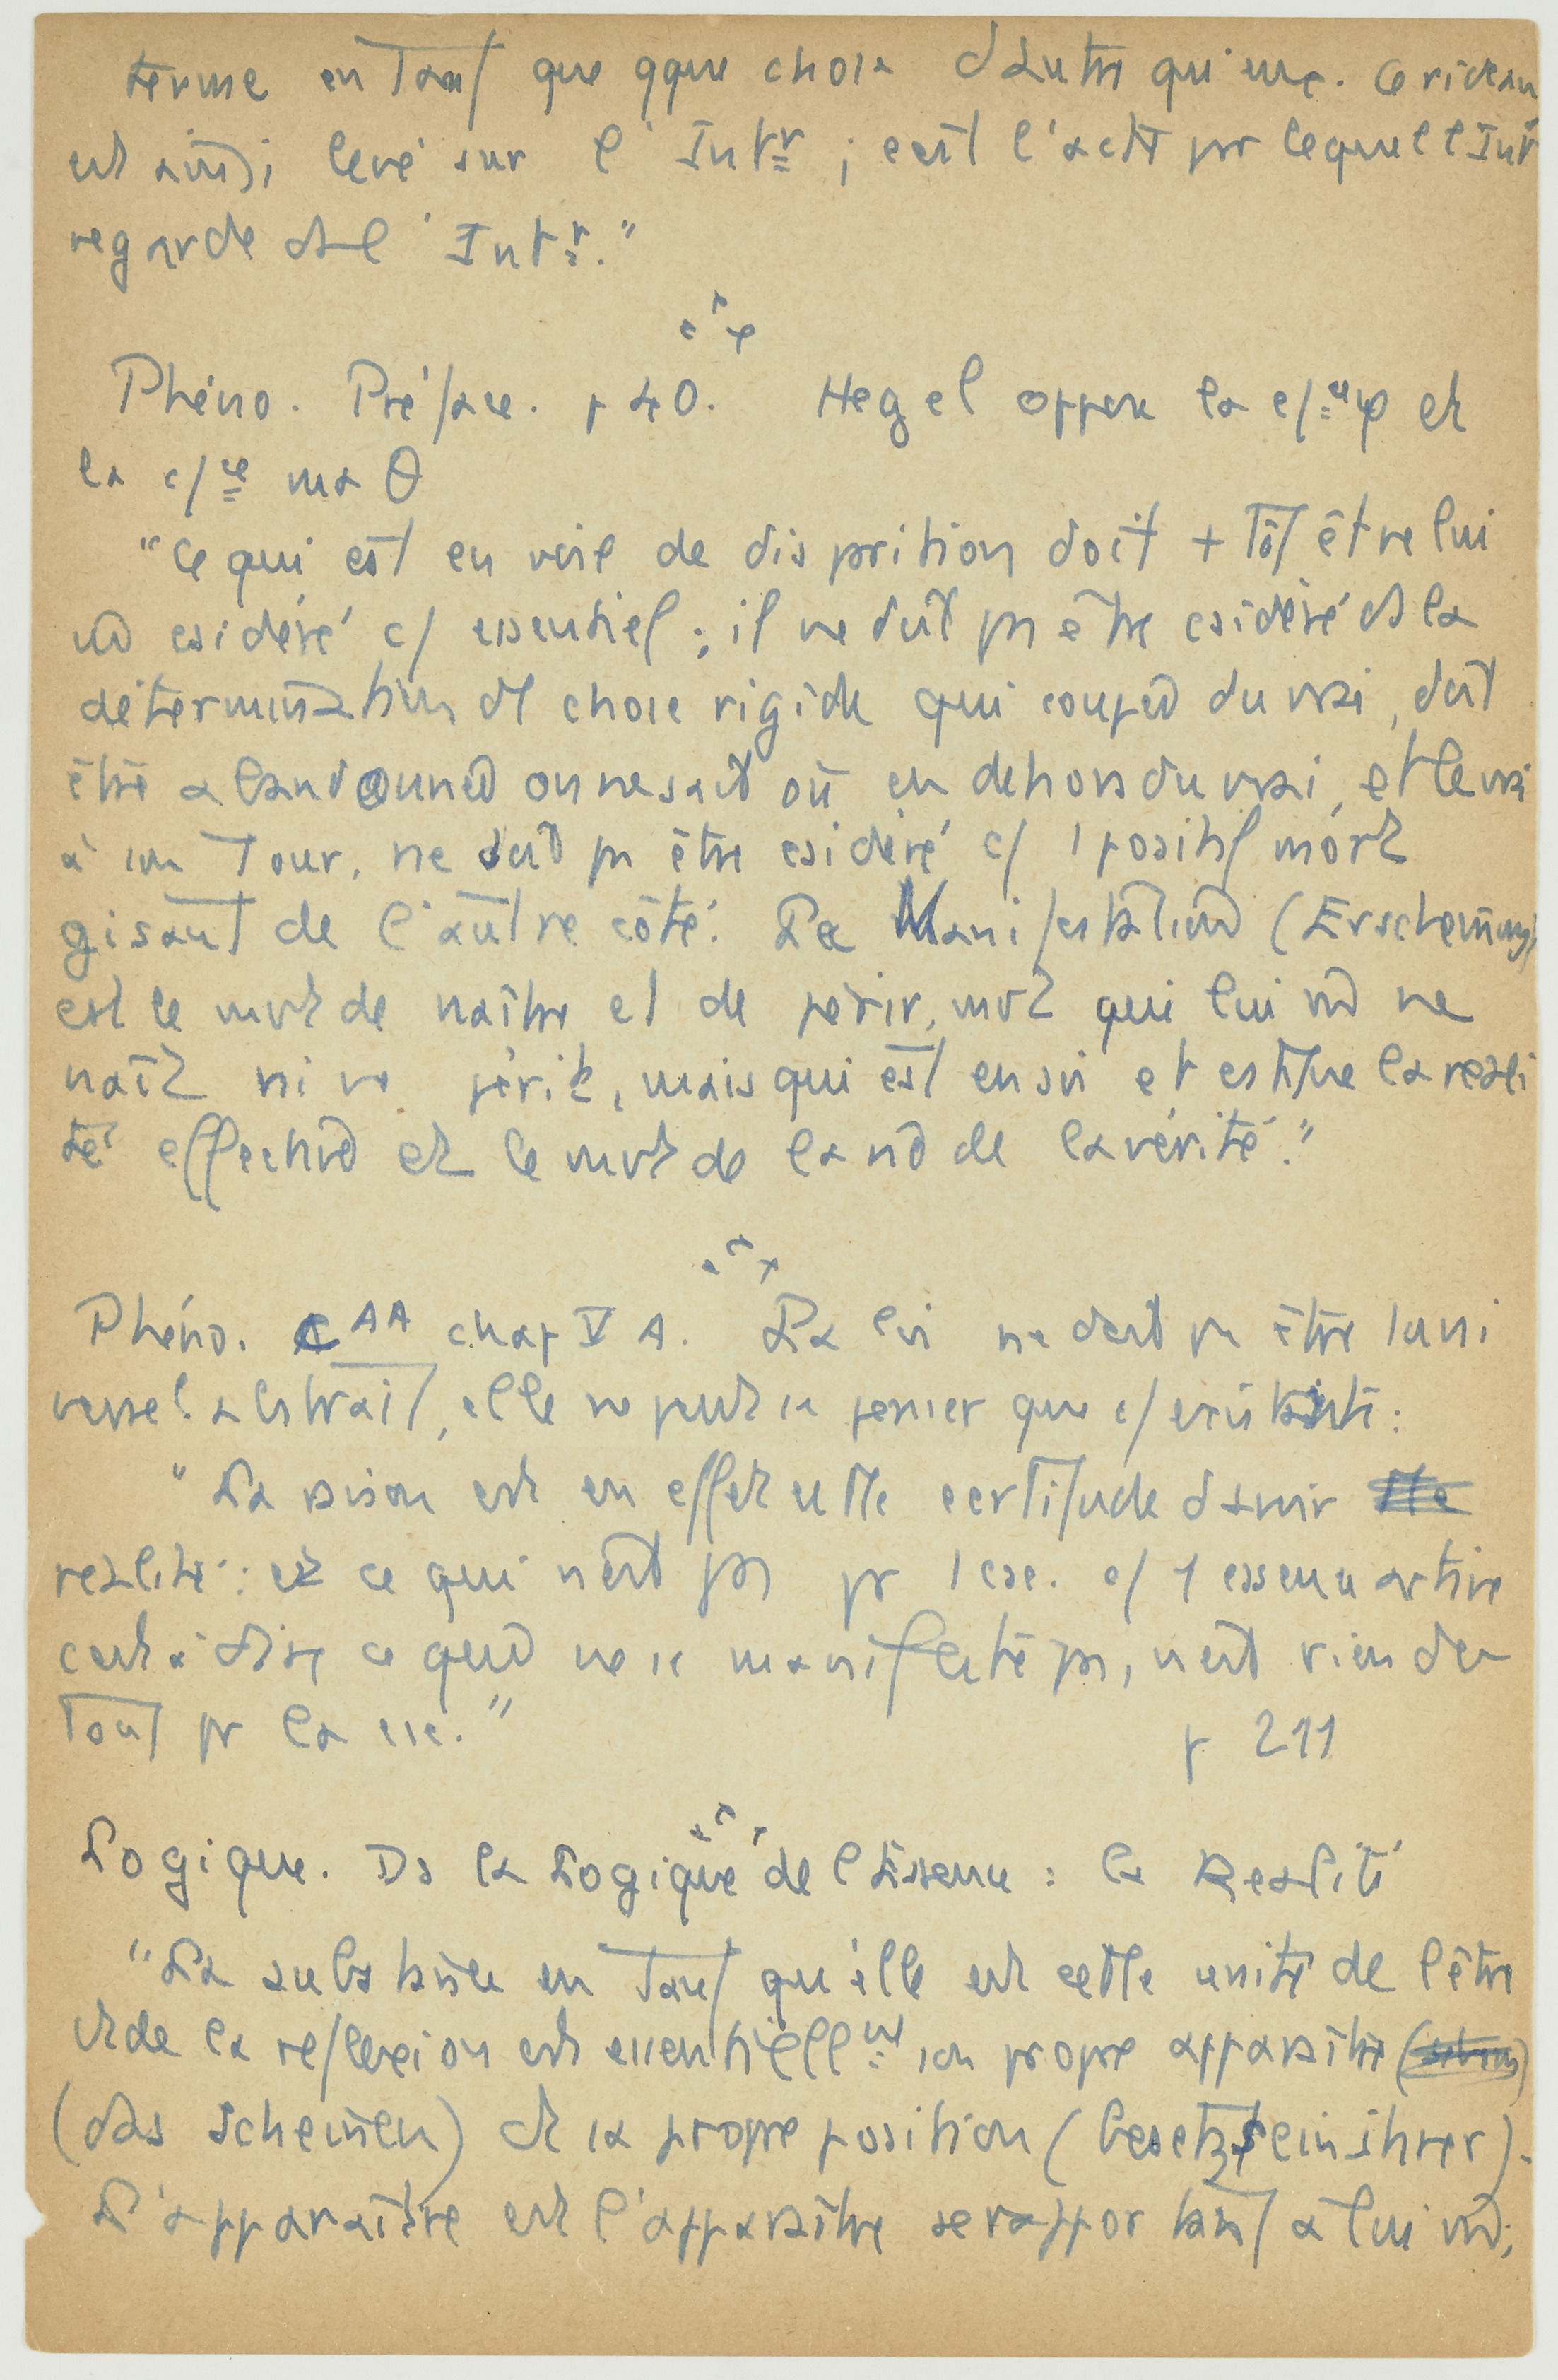 terme en tant que qque chose d'autre qu'eux. Ce rideau
est ainsi levé sur l'Intr ; c'est l'acte pr lequel l'Intr
regarde ds l'Intr."
Phéno. Préface. p 40. Hegel oppose la c/ce φ et
la c/ce ma θ
"Ce qui est en voie de disparition doit + tôt être lui
m̂ csidéré c/ essentiel ; il ne doit ps être csidéré ds la
détermination de chose rigide qui coupée du vrai, doit
être abandonnée on ne sait où en dehors du vrai, et le vrai
à son tour, ne doit ps être csidéré c/ 1 positif mort
gisant de l'autre côté. La Manifestation (Erscheinung)
est le mvt de naître et de périr, mvt qui lui m̂ ne
naît ni ne périt, mais qui est en soi et cstitue la réali
té effective et le mvt de la vie de la vérité."
Phéno. C AA chap V A. La loi ne doit ps être 1 uni
versel abstrait, elle ne peut se penser que c/ existante :
"La raison est en effet cette certitude d'avoir
réalité : et ce qui n'est ps pr 1 csc. c/ 1 essence active
c'est à dire ce qui ne se manifeste ps, n'est rien du
tout pr la csc."
p 211
Logique. Ds la Logique de l'Essence : la Réalité
"La substance en tant qu'elle est cette unité de l'être
et de la réflexion est essentiellemt son propre apparaître
(das Scheinen) et sa propre position (Gesetzsein ihrer).
L'apparaître est l'apparaître se rapportant à lui m̂ ;